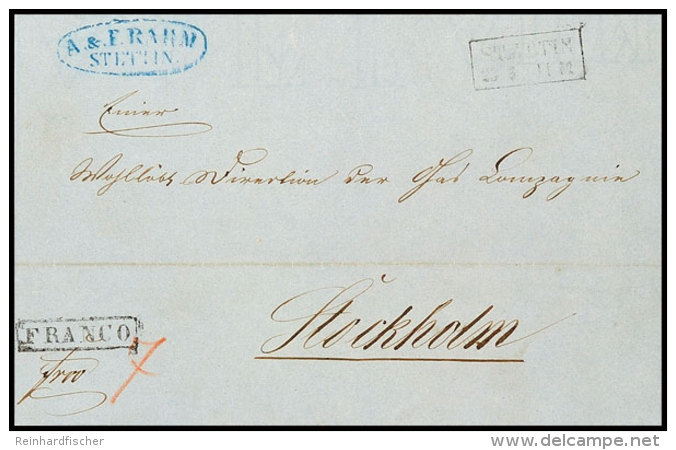 A. & F. RAHM
STETTIN.
STETTIN
Einer
Wohllöbl Direction der Gas Compagnie
Stockholm
FRANCO
frco
7
Reinhardfischer
www.delcampe.net